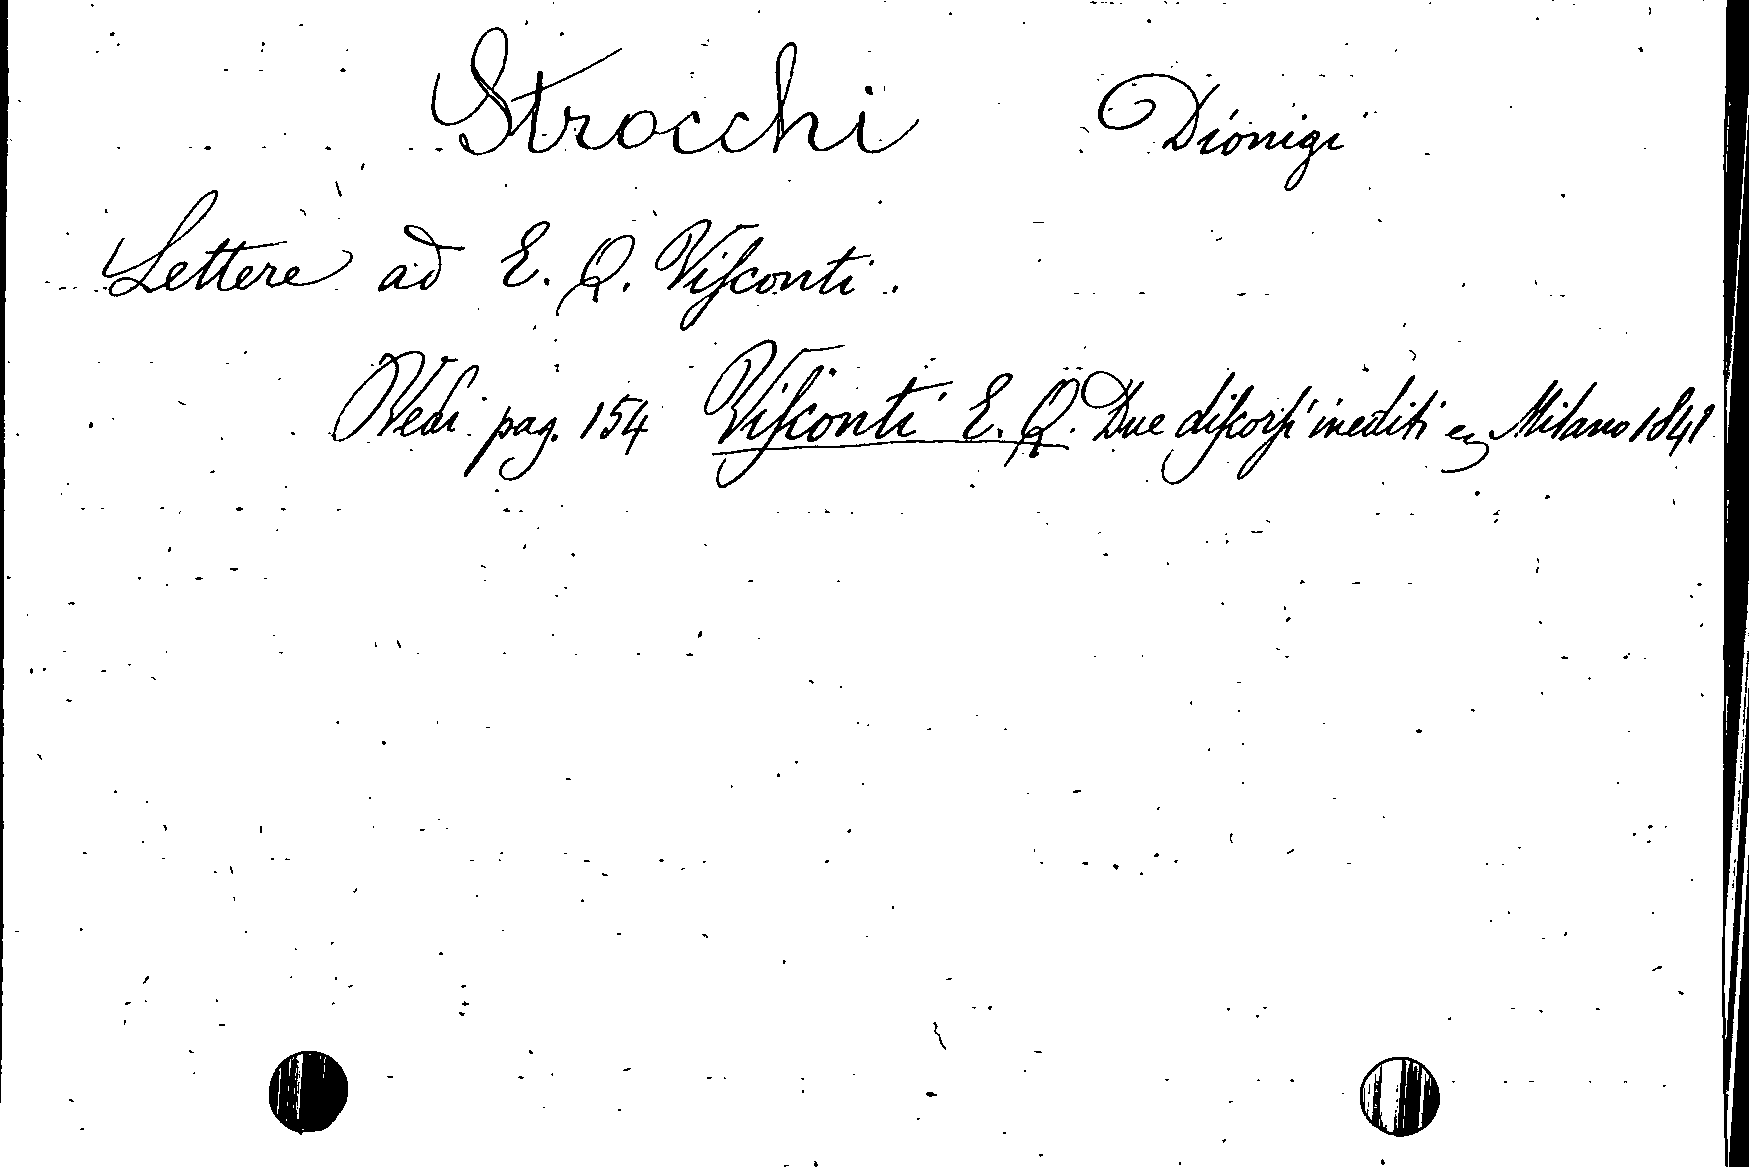 Strocchi Dionigi
Lettere ad E. Q. Viſconti.
Vedi pag. 154 Viſconti E. Q. Due diſcorſi inediti Milano 1841